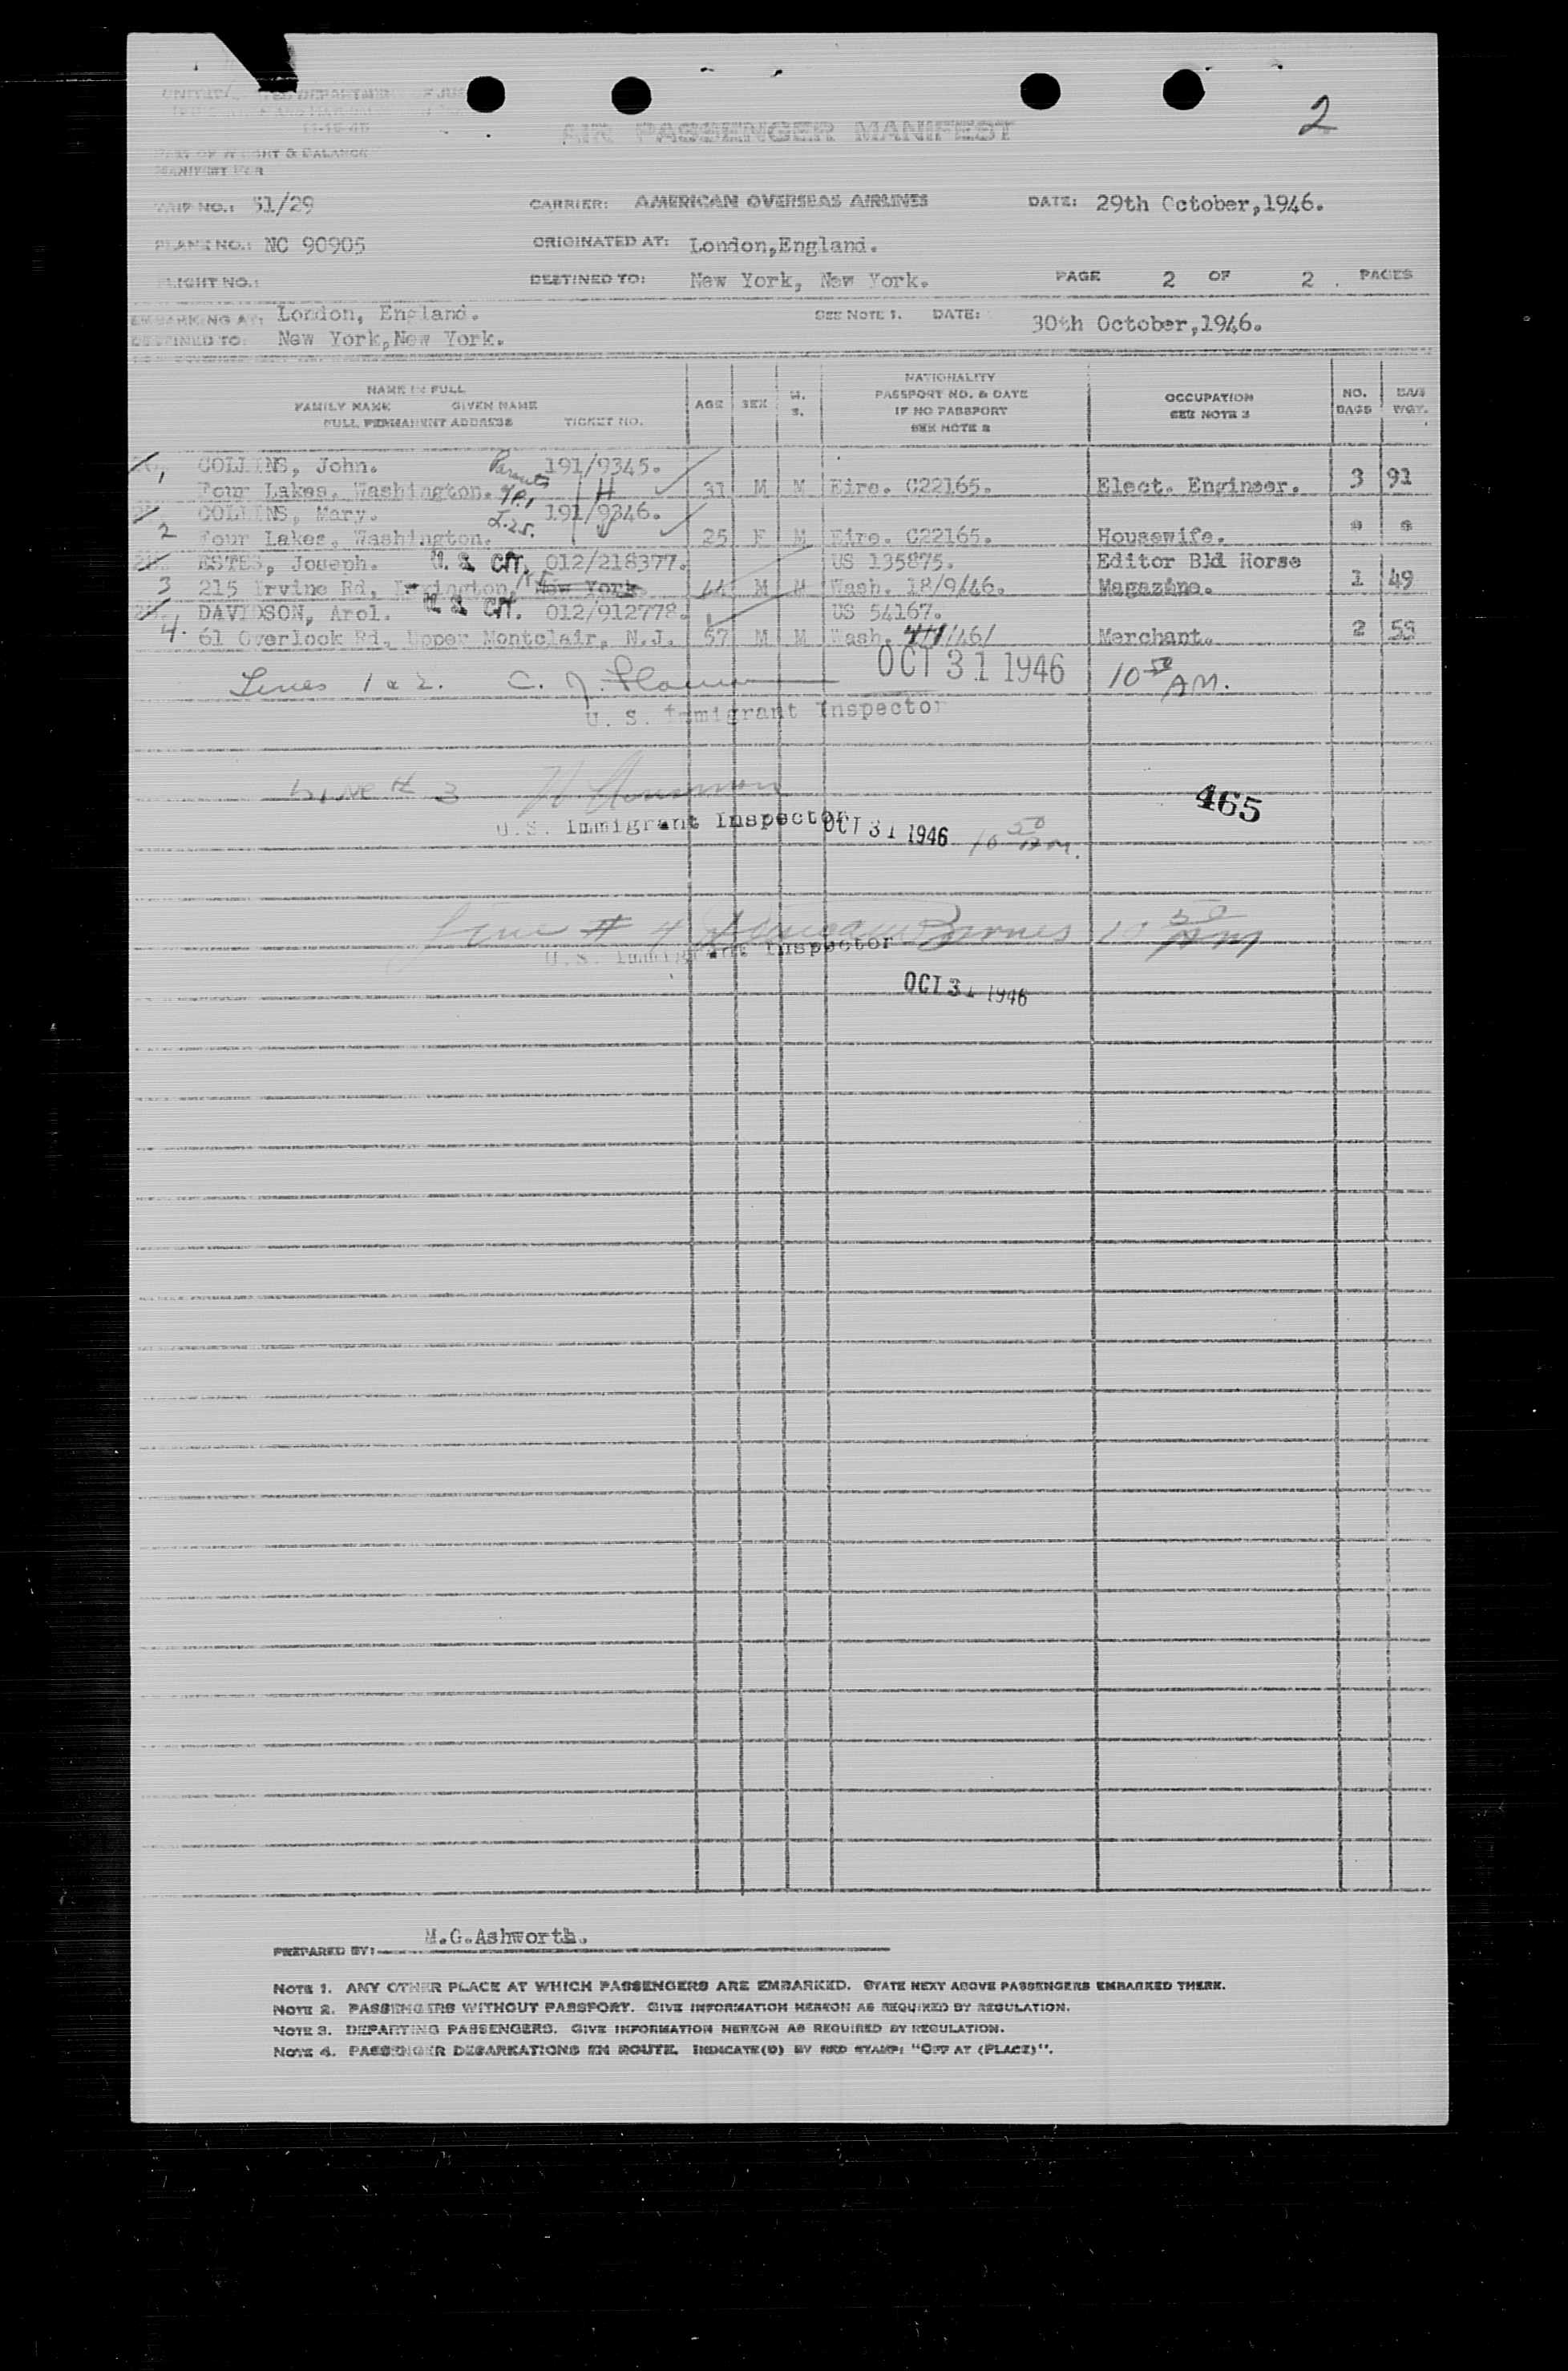 2
AIR PASSENGER MANIFEST
11-15-45
PART OF WEIGHT & BALANCE
MANIFEST FOR
TRIP NO.: 51/29 CARRIER: AMERICAN OVERSEAS AIRLINES DATE: 29th October,1946.
PLANE NO.: NC 90905 ORIGINATED AT: London,England.
FLIGHT NO.: DESTINED TO: New York, New York. PAGE 2 OF 2 . PAGES
EMBARKING AT: London, England. SEE NOTE 1. DATE: 30th October,1946.
DESTINED TO: New York,New York.
NAME IN FULL
FAMILY NAME GIVEN NAME
FULL PERMANENT ADDRESS TICKET NO.
AGE SEX M. S.
NATIONALITY
PASSPORT NO. & DATE
IF NO PASSPORT
SEE NOTE 2
OCCUPATION
SEE NOTE 3
NO. BAGS
BAG WGT.
1 COLLINS, John. 191/9345.
Four Lakes, Washington. H 31 M M Eire. C22165. Elect. Engineer. 3 91
COLLINS, Mary. 191/9346.
2 Four Lakes, Washington. 25 F M Eire. C22165. Housewife.
ESTES, Joseph. U.S. CIT. 012/218377. US 135875. Editor Bld Horse
3 215 Irvine Rd, New York. 44 M M Wash. 18/9/46. Magazine. 1 49
DAVIDSON, Arol. U.S. CIT. 012/912778. US 54167.
4. 61 Overlock Rd, Upper Montclair, N.J. 57 M M Wash. /46/ Merchant. 2 59
Lines 1 & 2. C. J. OCT 31 1946 10 50 AM.
U. S. Immigrant Inspector
Line # 3
465
U.S. Immigrant Inspector OCT 31 1946 10 50 AM.
Line # 4 Barnes 10 50 AM
U.S. Immigrant Inspector
OCT 31 1946
PREPARED BY: M.G.Ashworth.
NOTE 1. ANY OTHER PLACE AT WHICH PASSENGERS ARE EMBARKED. STATE NEXT ABOVE PASSENGERS EMBARKED THERE.
NOTE 2. PASSENGERS WITHOUT PASSPORT. GIVE INFORMATION HEREON AS REQUIRED BY REGULATION.
NOTE 3. DEPARTING PASSENGERS. GIVE INFORMATION HEREON AS REQUIRED BY REGULATION.
NOTE 4. PASSENGER DEBARKATIONS EN ROUTE. INDICATE(D) BY RED STAMP: "OFF AT (PLACE)".